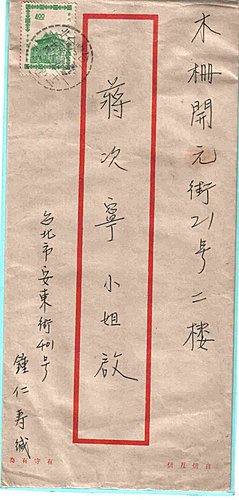 木柵開元街21号二楼
蔣次寧小姐啟
台北市安東街401号
鍾仁寿緘
400